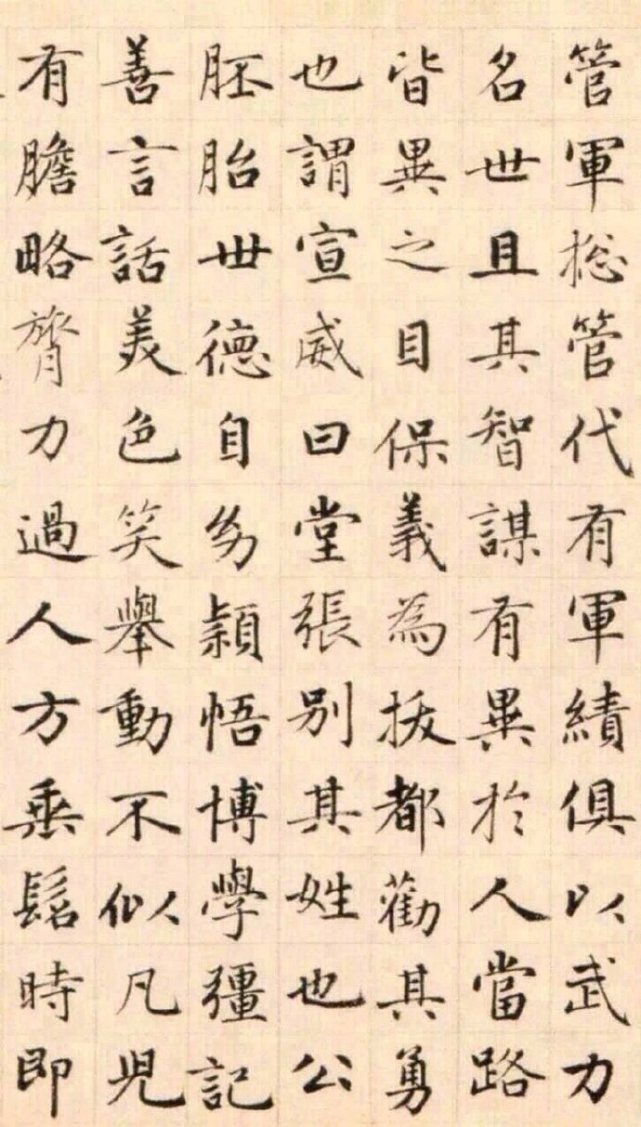 管軍捴管代有軍績俱以武力
名世且其智謀有異於人當路
皆異之目保義為拔都勸其勇
也謂宣威曰堂張別其姓也公
胚胎世德自幼穎悟博學彊記
善言話美色笑舉動不似凡児
有膽略膂力過人方垂髫時即